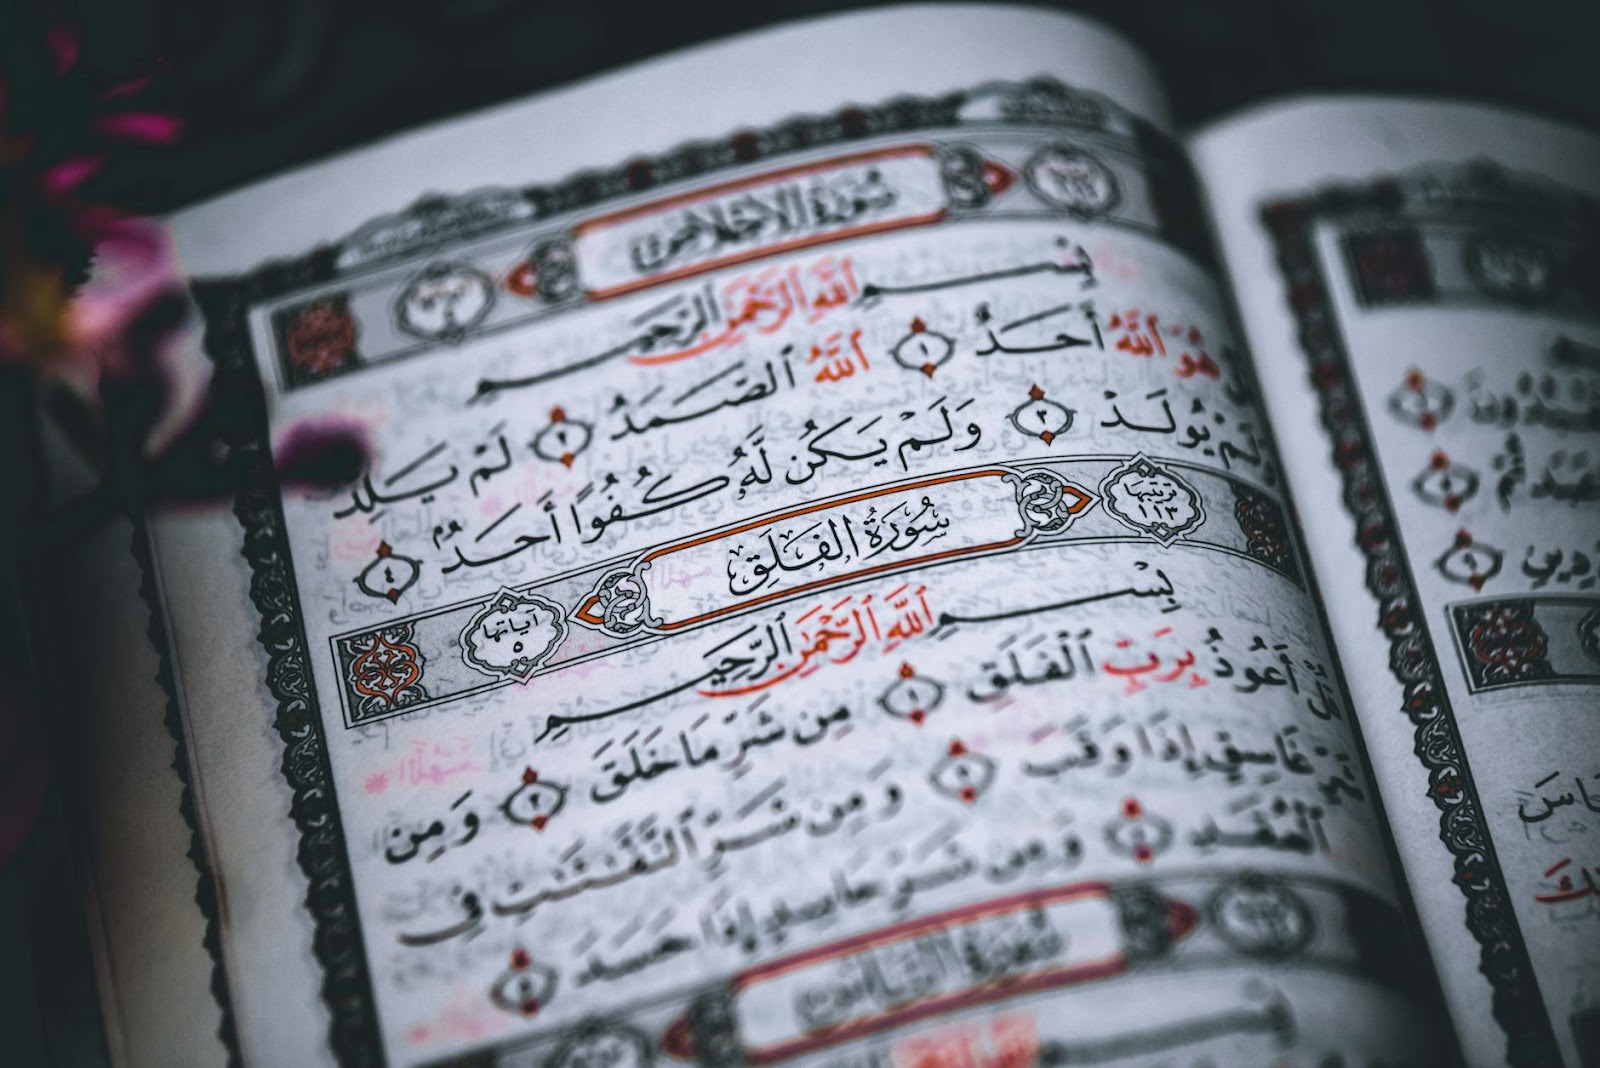 سُورَةُ الإِخْلَاصِ
بِسْمِ ٱللَّهِ ٱلرَّحْمَٰنِ ٱلرَّحِيمِ
هُوَ ٱللَّهُ أَحَدٌ ١ ٱللَّهُ ٱلصَّمَدُ ٢ لَمْ يَلِدْ
وَلَمْ يُولَدْ ٣ وَلَمْ يَكُن لَّهُۥ كُفُوًا أَحَدٌۢ ٤
ترتيبها ١١٣ سُورَةُ الفَلَقِ آياتها ٥
بِسْمِ ٱللَّهِ ٱلرَّحْمَٰنِ ٱلرَّحِيمِ
قُلْ أَعُوذُ بِرَبِّ ٱلْفَلَقِ ١ مِن شَرِّ مَا خَلَقَ ٢ وَمِن
شَرِّ غَاسِقٍ إِذَا وَقَبَ ٣ وَمِن شَرِّ ٱلنَّفَّٰثَٰتِ فِى
ٱلْعُقَدِ ٤ وَمِن شَرِّ حَاسِدٍ إِذَا حَسَدَ ٥
سُورَةُ النَّاسِ
دِينِ ٦